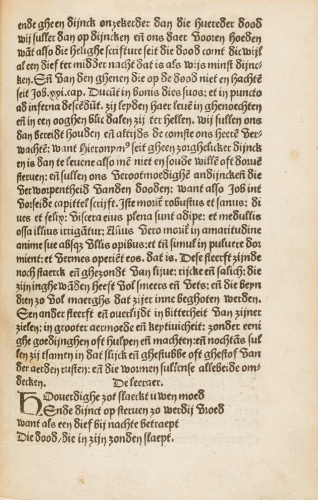 ende gheen dijnck onzekerder dan die huerder dood
wij sullen dan op dijncken eñ ons daer vooren hoeden
wãt also die helighe scrifture seit die dood comt dicwijl
al een dief ter midder nacht dat is als wijs minst dijnc-
ken. Eñ van den ghenen die op de dood niet en hachtẽ
seit Job.xxi.cap. Ducũt in bonis dies suos: et in puncto
ad inferna descẽdũt. zij leyden haer leuẽ in ghenoechten
eñ in een ooghen blic dalen zij ter hellen. wij sullen ons
dan bereidt houden eñ altijds de comste ons heerẽ ver-
wachtẽ: want Hieronymꝰ seit gheen zorghelicker dijnck
en is dan te leuene also mẽ niet en soude willẽ oft doruẽ
steruen: eñ sullen ons verootmoedighẽ andijncken die
verworpentheit vanden dooden: want also Job int
voseide capittel scrijft. Iste moriť robustus et sanus: di
ues et felix: viscera eius plena sunt adipe: et medullis
ossa illius irrigãtur; Alius vero moriť in amaritudine
anime sue absqꝫ vllis opibus: et tñ simul in puluere dor
mient: et vermes operiẽt eos. dat is. Dese sterft zijnde
noch staerck eñ ghezondt van lijue: rijcke eñ salich: die
zijn inghewãden heeft vol smeers eñ vets: eñ die beyn
dien zo vol maerghs dat zijer inne beghoten werden.
Een ander sterft eñ ouerlijdt in bitterheit van zijner
zielen: in grooter aermoede eñ keytiuicheit: zonder eeni
ghe goedijnghen oft hulpen eñ machten: eñ nochtãs sul
len zij tsamen in dat slijck eñ ghestubbe oft ghestof van
der aerden rusten: eñ die wormen sullense allebeide om-
decken. De leeraer.
Hooverdighe zot slaeckt uwen moed
Ende dijnct op steruen zo werdij vroed
want als een dief bij nachte betraept
Die dood/die in zijn zonden slaept.